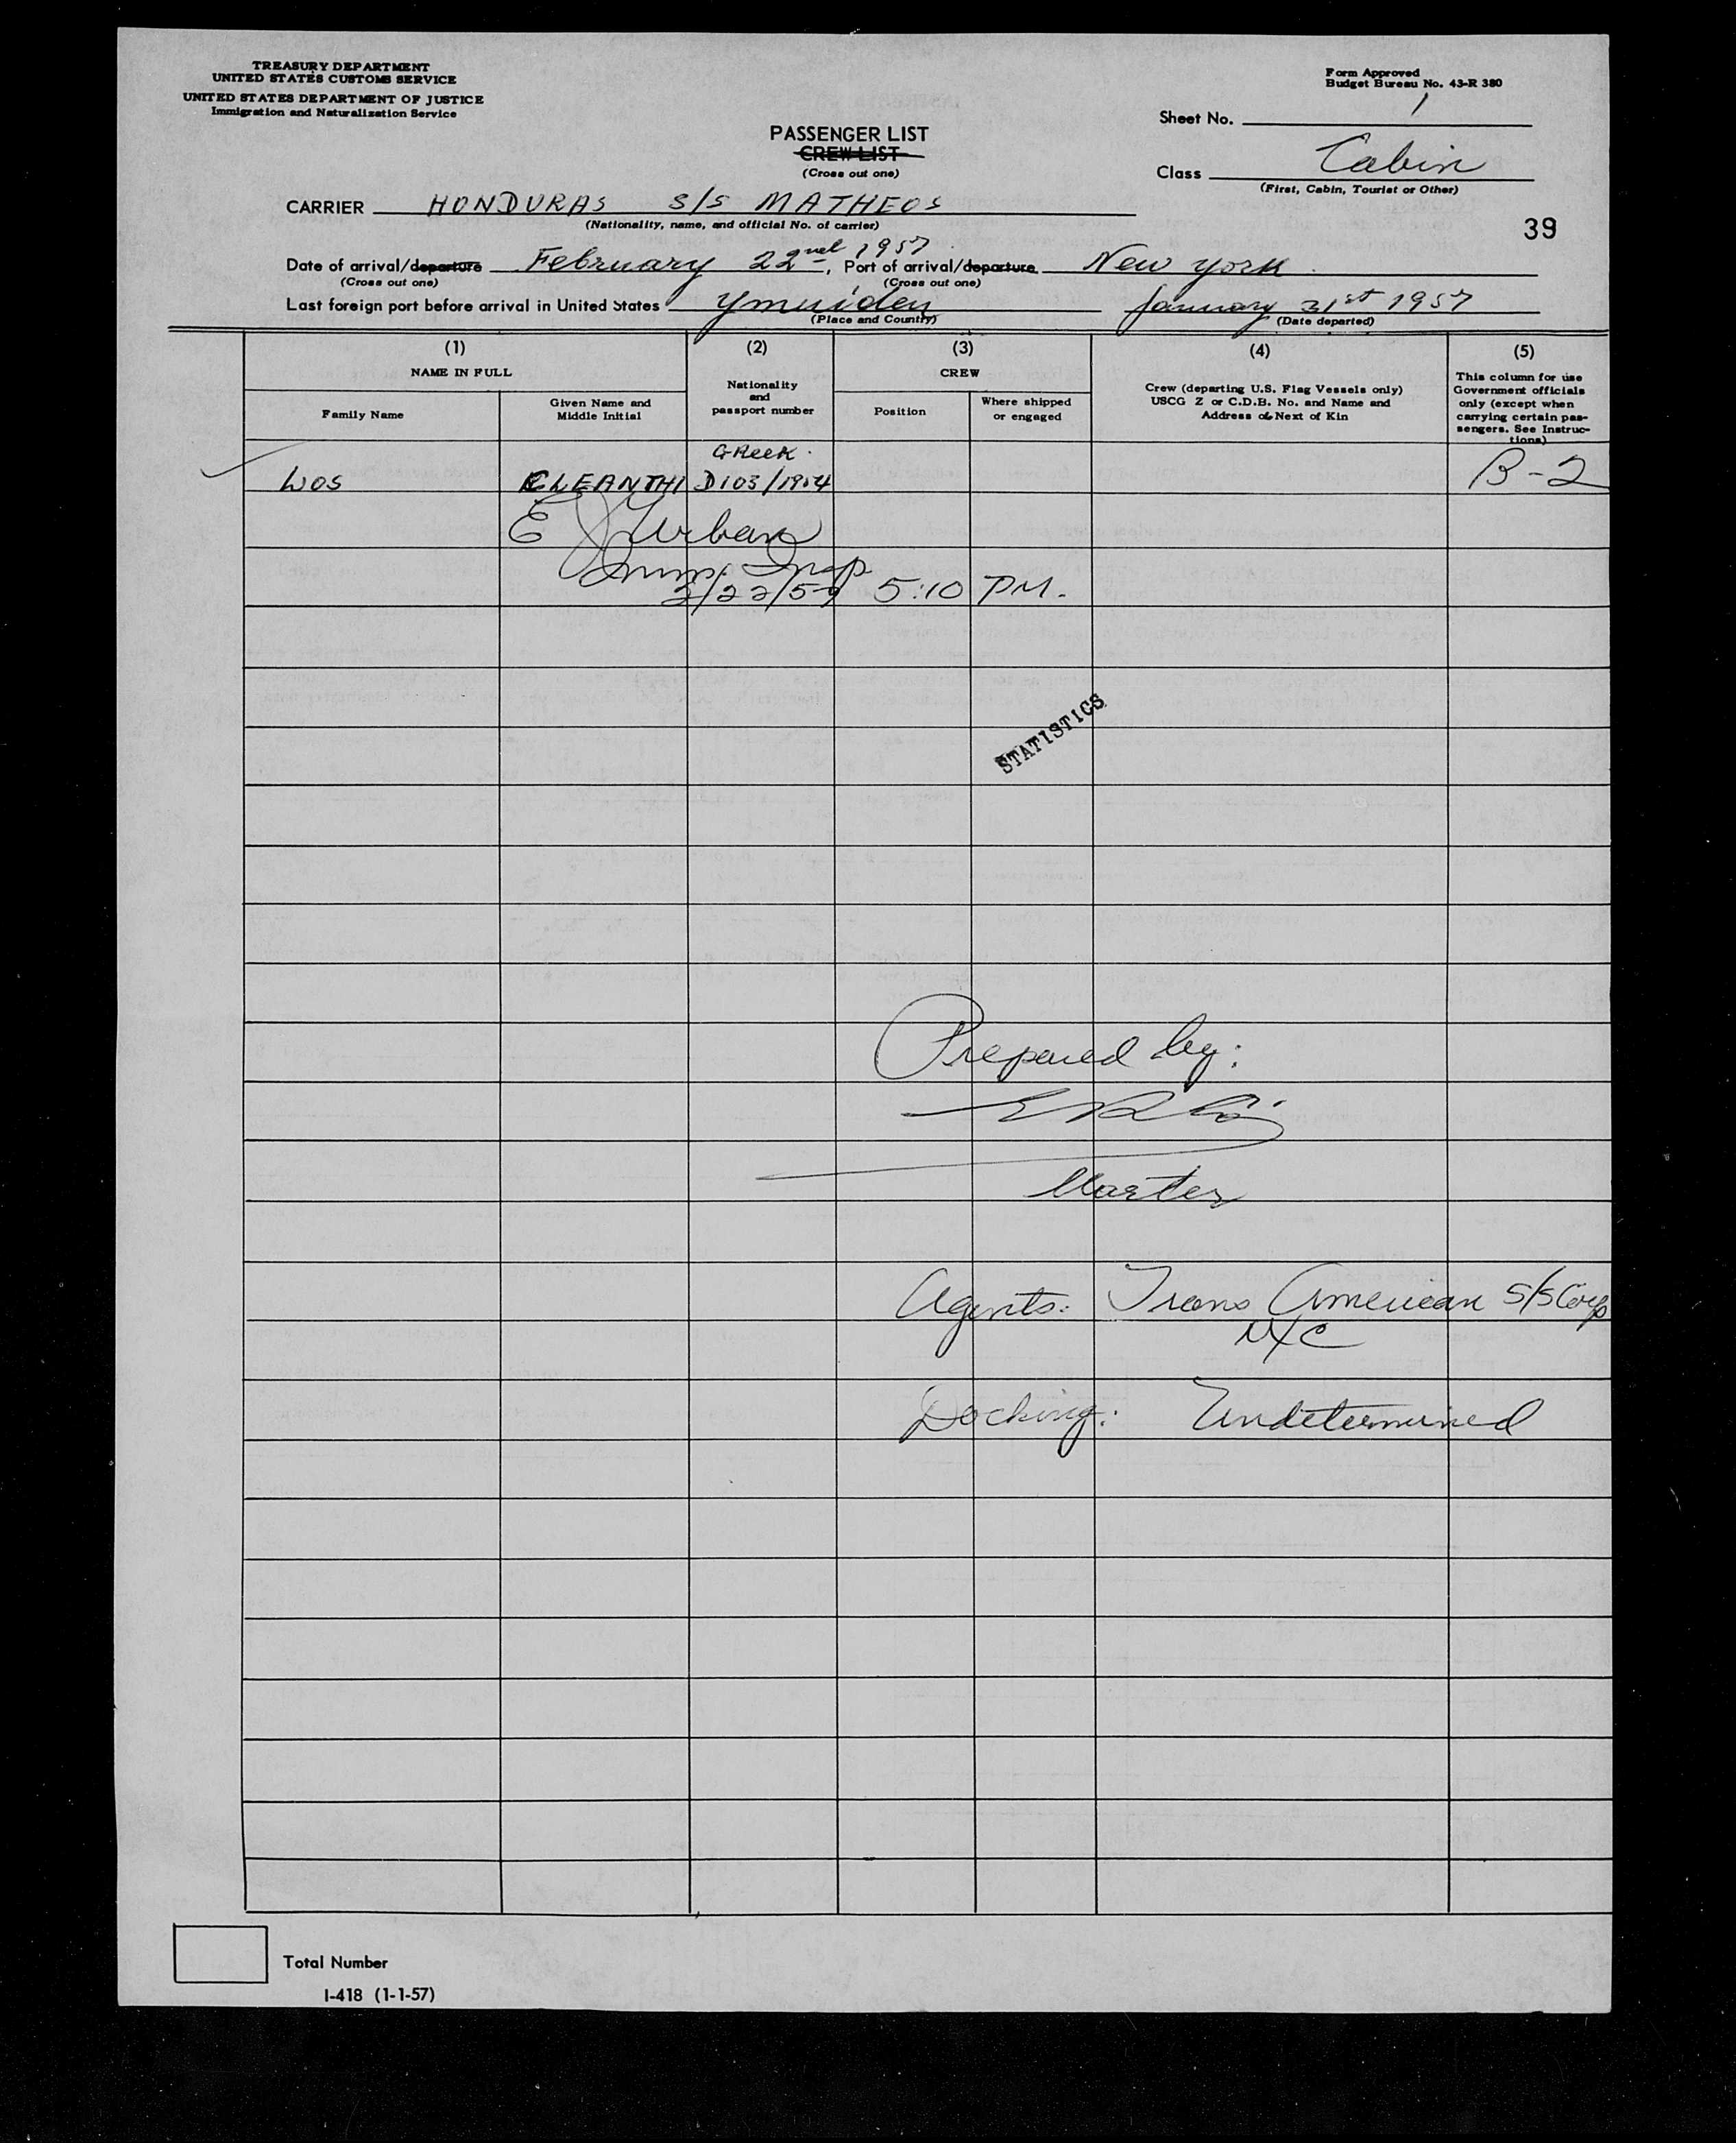 TREASURY DEPARTMENT
UNITED STATES CUSTOMS SERVICE
UNITED STATES DEPARTMENT OF JUSTICE
Immigration and Naturalization Service
Form Approved
Budget Bureau No. 43-R 380
Sheet No. 1
PASSENGER LIST
CREW LIST
(Cross out one)
Class Cabin
(First, Cabin, Tourist or Other)
CARRIER HONDURAS S/S MATHEOS
(Nationality, name, and official No. of carrier)
39
Date of arrival/departure February 22nd, 1957. Port of arrival/departure New York
(Cross out one) (Cross out one)
Last foreign port before arrival in United States Ymuiden January 31st 1957
(Place and Country) (Date departed)
(1) (2) (3) (4) (5)
NAME IN FULL
Family Name
Given Name and
Middle Initial
Nationality
and
passport number
CREW
Position
Where shipped
or engaged
Crew (departing U.S. Flag Vessels only)
USCG Z or C.D.B. No. and Name and
Address of Next of Kin
This column for use
Government officials
only (except when
carrying certain pas-
sengers. See Instruc-
tions)
GReeK.
LIOS CLEANTHI D103/1954 B-2
E J Urban
Imm. Insp
2/22/57 5:10 PM.
STATISTICS
Prepared by:
Master
Agents: Trans American S/S Corp
NYC
Docking: Undetermined
Total Number
I-418 (1-1-57)